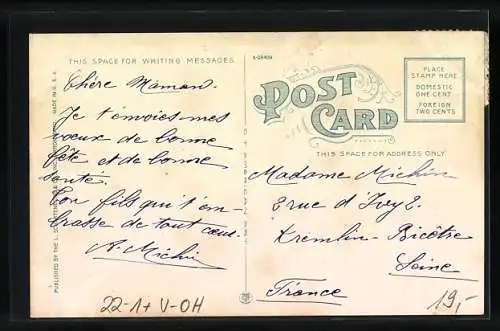 THIS SPACE FOR WRITING MESSAGES
Chère Maman.
Je t'envoies mes
voeux de bonne
fête et de bonne
santé.
Ton fils qui t'em-
brasse de tout coeur
A. Michin
22-1+ V-OH
POST
CARD
PLACE
STAMP HERE
DOMESTIC
ONE CENT
FOREIGN
TWO CENTS
THIS SPACE FOR ADDRESS ONLY
Madame Michin
2 rue d'Ivry 2.
Kremlin-Bicêtre
Seine
France
19,-
MADE IN U.S.A.